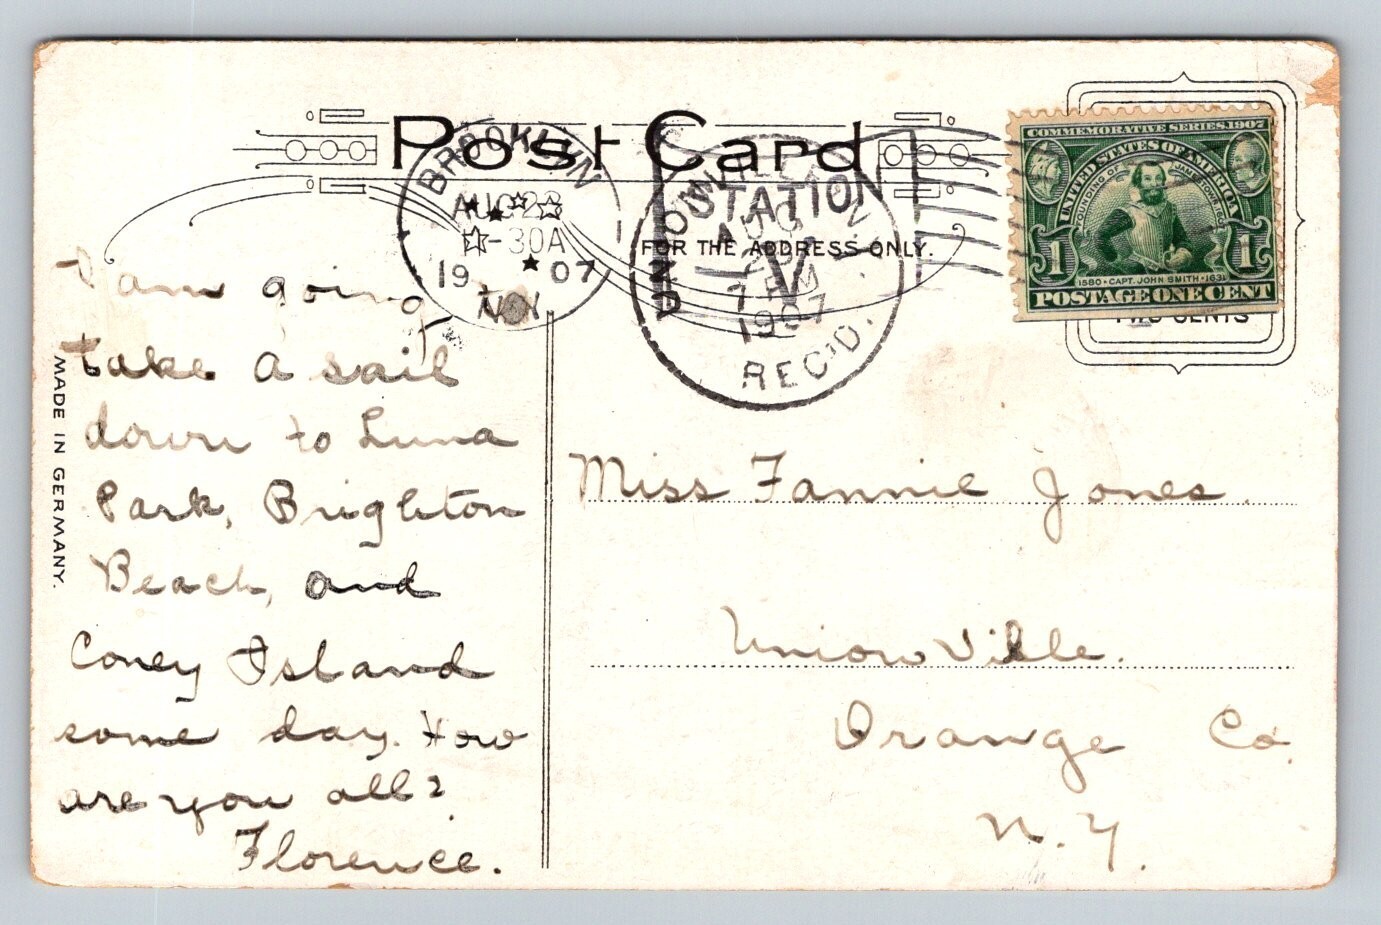 Post Card
BROOKLYN
AUG 23
-30A
1907
N.Y.
STATION
V
AUG
7 PM
1907
REC'D.
FOR THE ADDRESS ONLY.
COMMEMORATIVE SERIES 1907
UNITED STATES OF AMERICA
FOUNDING OF JAMESTOWN
1 1
1580 • CAPT. JOHN SMITH • 1631
POSTAGE ONE CENT
TWO CENTS
MADE IN GERMANY.
I am going
take a sail
down to Luna
Park, Brighton
Beach, and
Coney Island
some day. How
are you all?
Florence.
Miss Fannie Jones.
Unionville.
Orange Co.
N.Y.